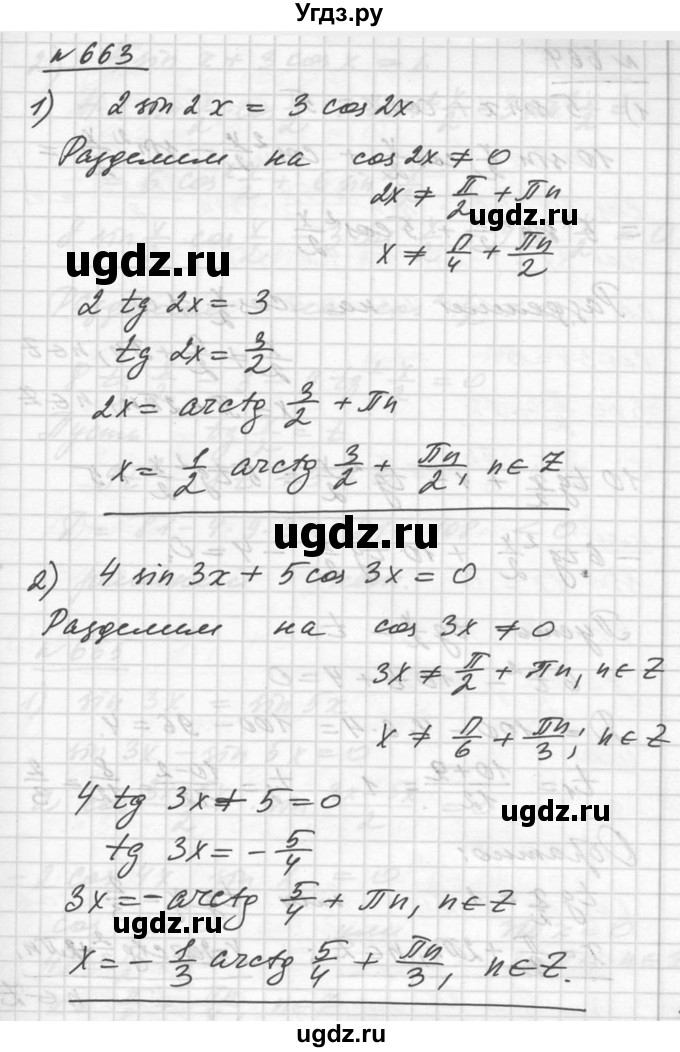 Угдз.ру
№663
1) 2 sin 2x = 3 cos 2x
Разделим на cos 2x ≠ 0
2x ≠ π/2 + πn
ugdz.ru
x ≠ π/4 + πn/2
ugdz.ru
2 tg 2x = 3
tg 2x = 3/2
2x = arctg 3/2 + πn
x = 1/2 arctg 3/2 + πn/2, n ∈ Z
ugdz.ru
2) 4 sin 3x + 5 cos 3x = 0
Разделим на cos 3x ≠ 0
3x ≠ π/2 + πn, n ∈ Z
x ≠ π/6 + πn/3; n ∈ Z
4 tg 3x + 5 = 0
tg 3x = - 5/4
3x = - arctg 5/4 + πn, n ∈ Z
ugdz.ru
x = - 1/3 arctg 5/4 + πn/3, n ∈ Z.
ugdz.ru